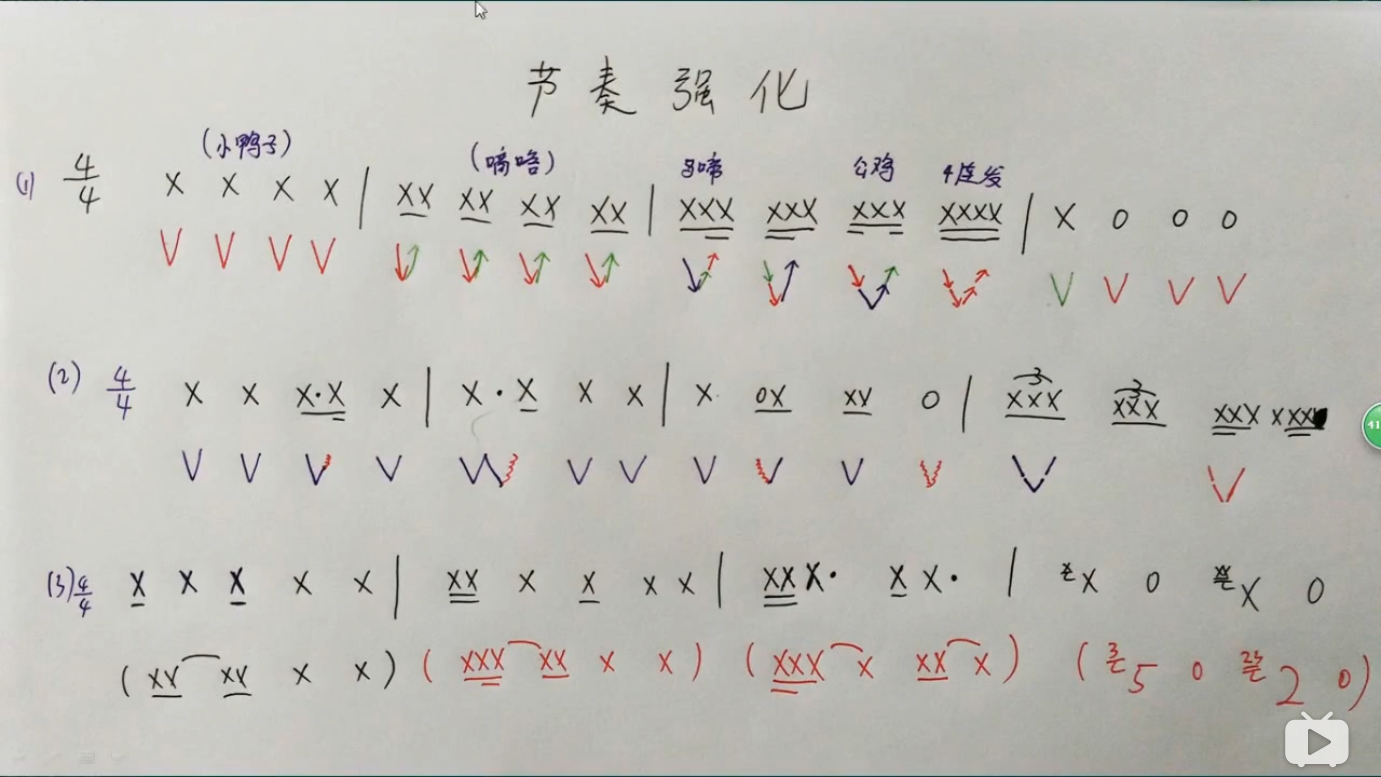 节奏强化
(小鸭子) (嘀嗒) 马啼 公鸡 4连发
(1) 4/4 X X X X | XX XX XX XX | XXX XXX XXX XXXX | X 0 0 0
V V V V V V V V
(2) 4/4 X X X·X X | X·X X X | X 0X XX 0 | 3 XXX 3 XXX XXX XXX
V V V V V V V V V V V
(3) 4/4 X X X X X | XX X X X X | XX X· X X· | X 0 X 0
(XX XX X X) (XXX XX X X) (XXX X XX X) (3 5 0 23 2 0)
41